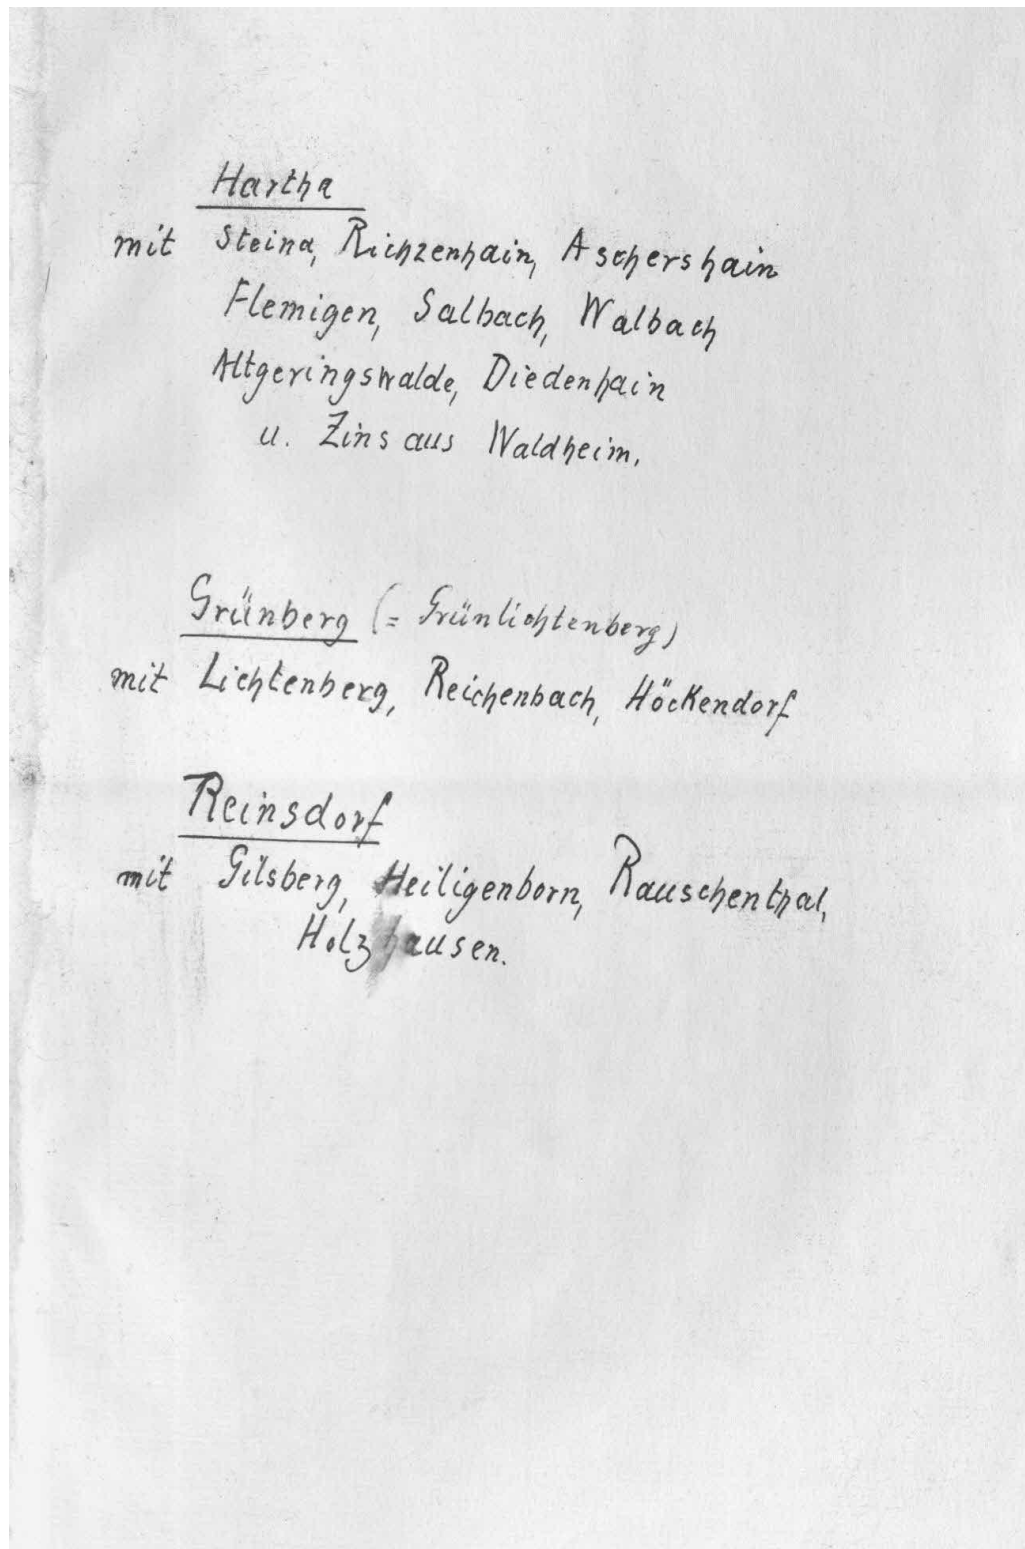 Hartha
mit Steina, Richzenhain, Aschershain
Flemigen, Salbach, Walbach
Altgeringswalde, Diedenhain
u. Zins aus Waldheim.
Grünberg (= Grünlichtenberg)
mit Lichtenberg, Reichenbach, Höckendorf
Reinsdorf
mit Gilsberg, Heiligenborn, Rauschenthal,
Holzhausen.